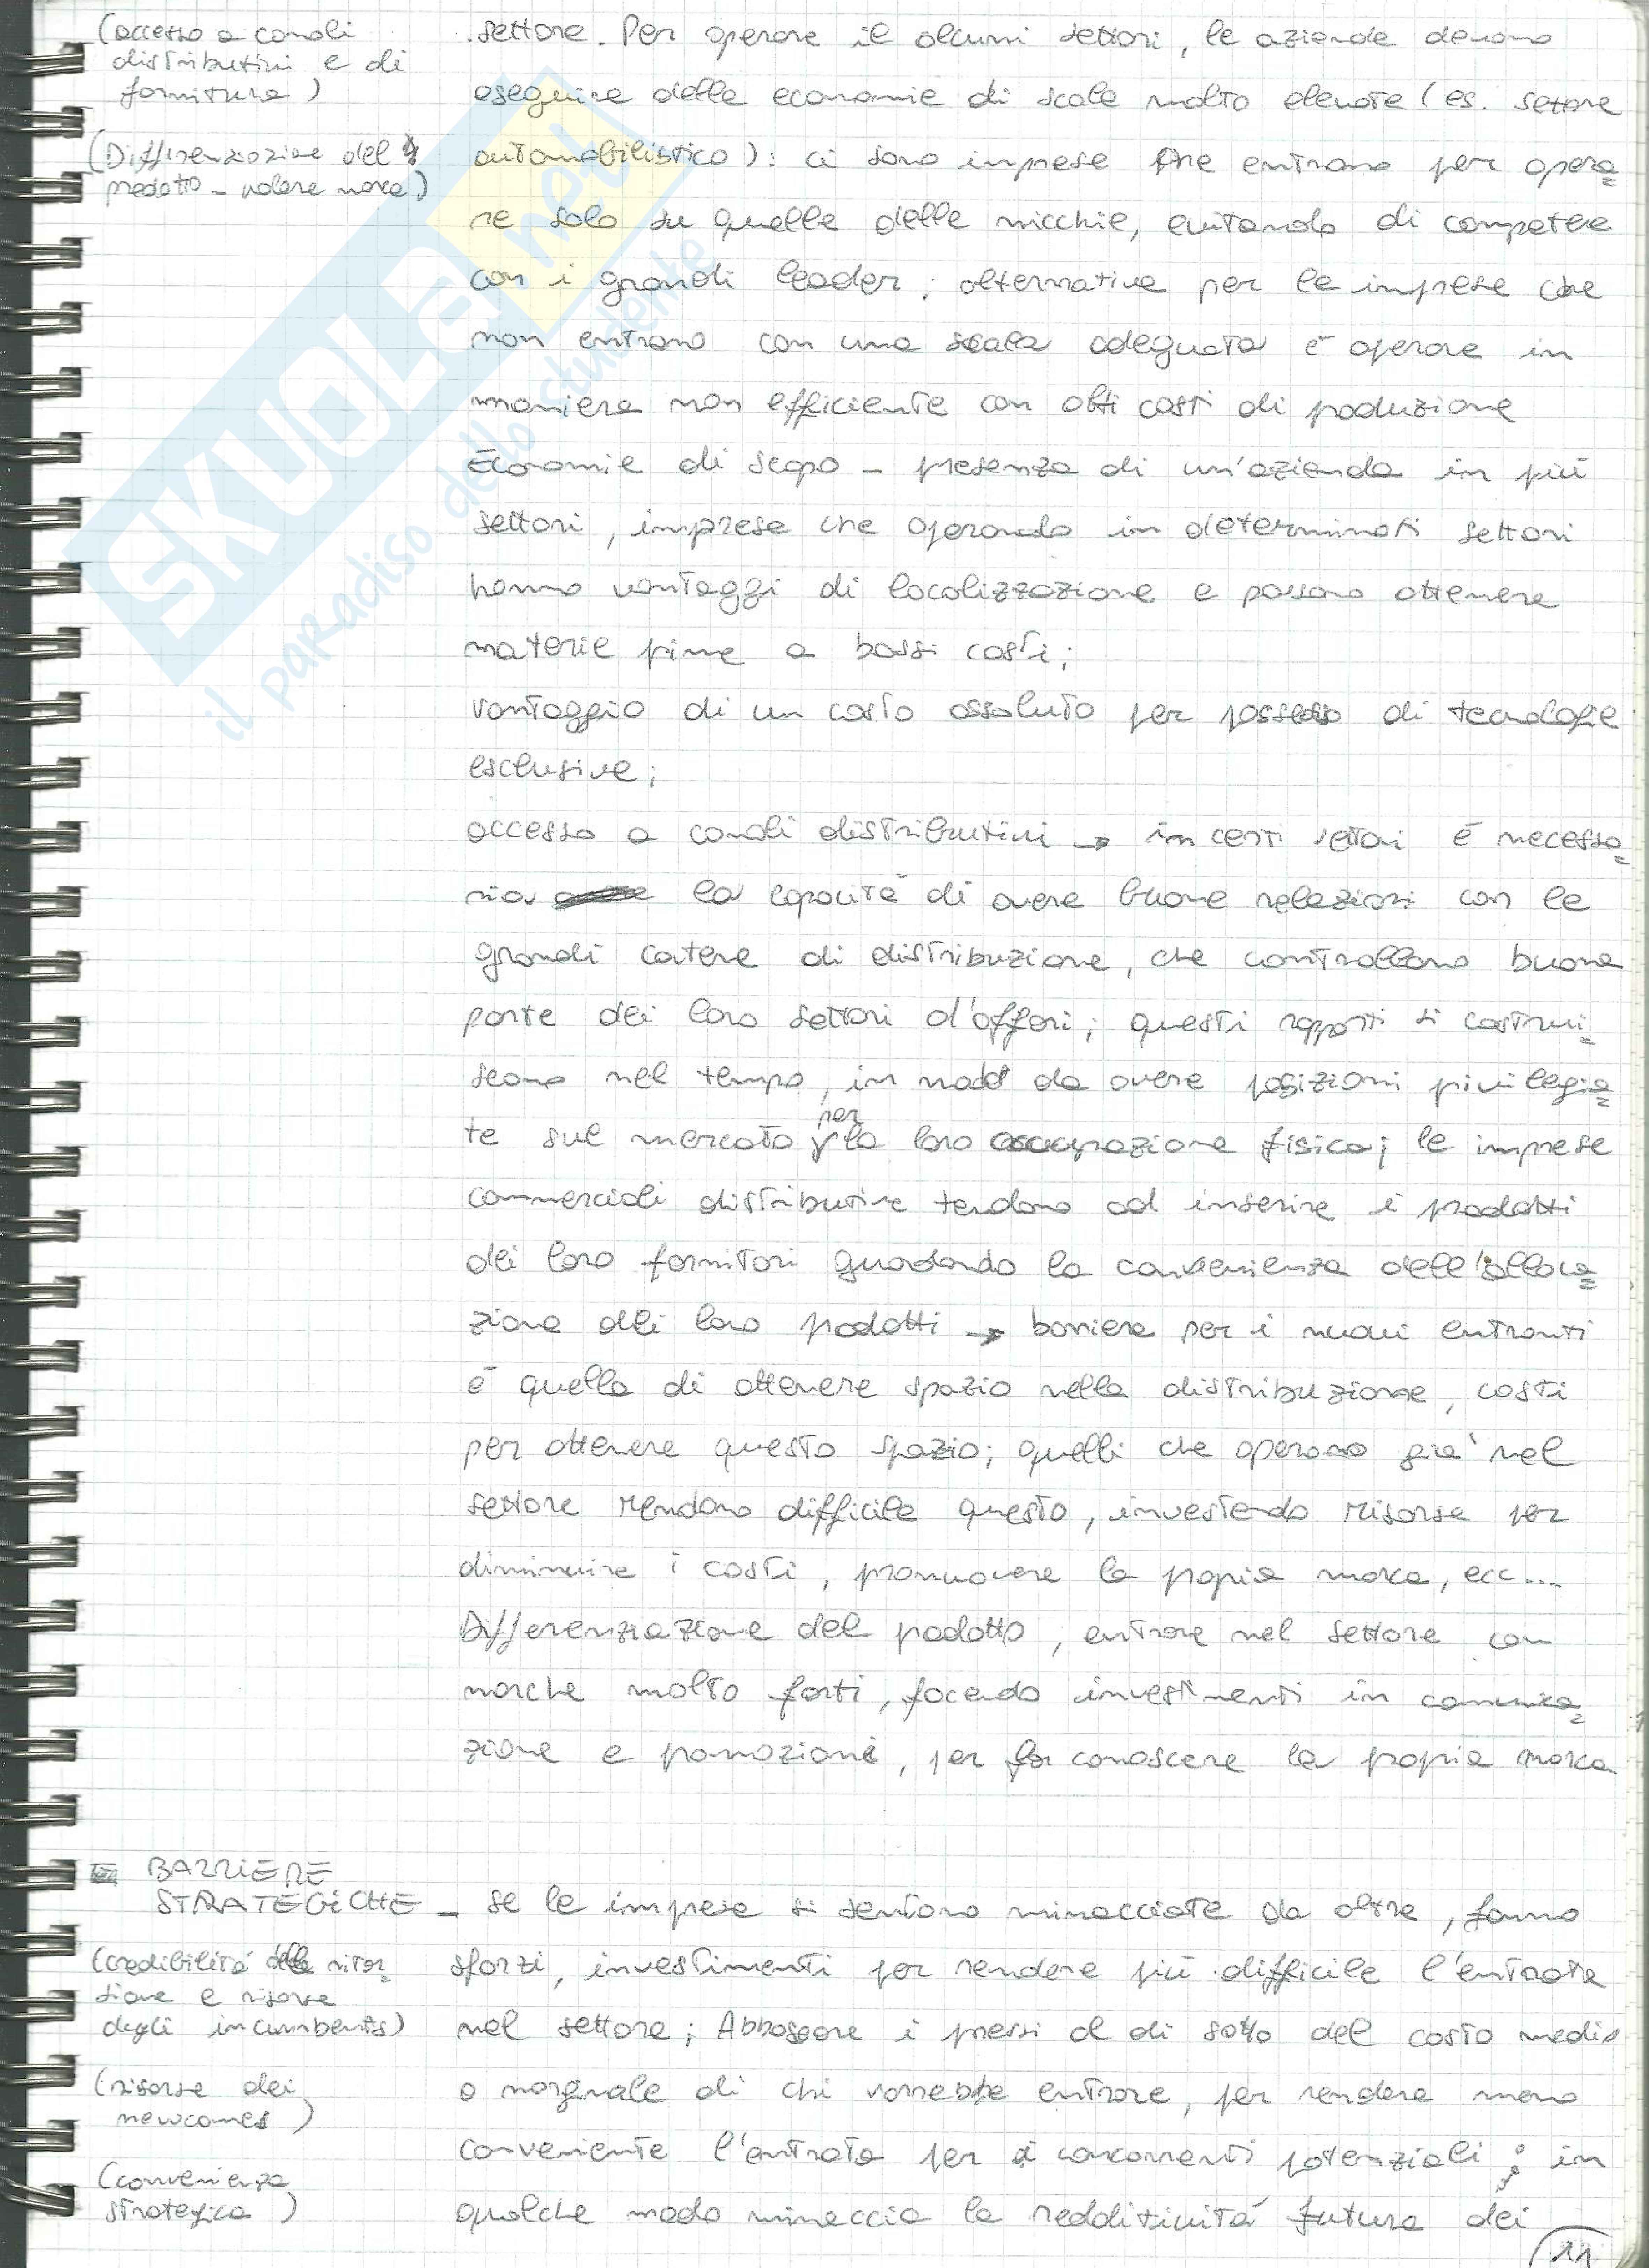 (accesso a canali
distributivi e di
forniture)
(Differenziazione del
prodotto - valore marca)
settore. Per operare il alcuni settori, le aziende devono
eseguire delle economie di scale molto elevate (es. settore
automobilistico): ci sono imprese che entrano per opera=
re solo su quelle delle nicchie, evitando di competere
con i grandi leader; alternativa per le imprese che
non entrano con una scala adeguata è operare in
maniera non efficiente con alti costi di poduzione
Economie di scopo - presenza di un'azienda in più
settori, imprese che operando in determinati settori
hanno vantaggi di localizzazione e possono ottenere
materie pime a bassi costi;
vantaggio di un costo assoluto per possesso di tecnologie
esclusive;
accesso a canali distributivi → in certi settori è necessa=
ria la capacità di avere buone relazioni con le
grandi catene di distribuzione, che controllano buona
parte dei loro settori d'affari; questi rapporti si costrui=
scono nel tempo, in modo da avere posizioni pivilegia=
te sul mercato per la loro occupazione fisica; le imprese
commerciali distributive tendono ad inserire i prodotti
dei loro fornitori guardando la convenienza dell'alloca=
zione dei loro podotti → barriera per i nuovi entranti
è quella di ottenere spazio nella distribuzione, costi
per ottenere questo spazio; quelli che operano già nel
settore rendono difficile questo, investendo risorse per
diminuire i costi, promuovere la popria marca, ecc...
Differenziazione del podotto, entrare nel settore con
marche molto forti, facendo investimenti in comunica=
zione e pomozioni, per far conoscere la propria marca
BARRIERE
STRATEGICHE - se le imprese si sentono minacciate da altre, fanno
(credibilità della ritor-
sione e risorse
degli incumbents)
(risorse dei
newcomers)
(convenienza
strategica)
sforzi, investimenti per rendere più difficile l'entrata
nel settore; Abbassare i prezzi al di sotto del costo medio
o marginale di chi vorrebbe entrare, per rendere meno
conveniente l'entrata per i concorrenti potenziali; in
qualche modo minaccia la redditività futura dei
11
SKUOLA.net
il paradiso dello studente